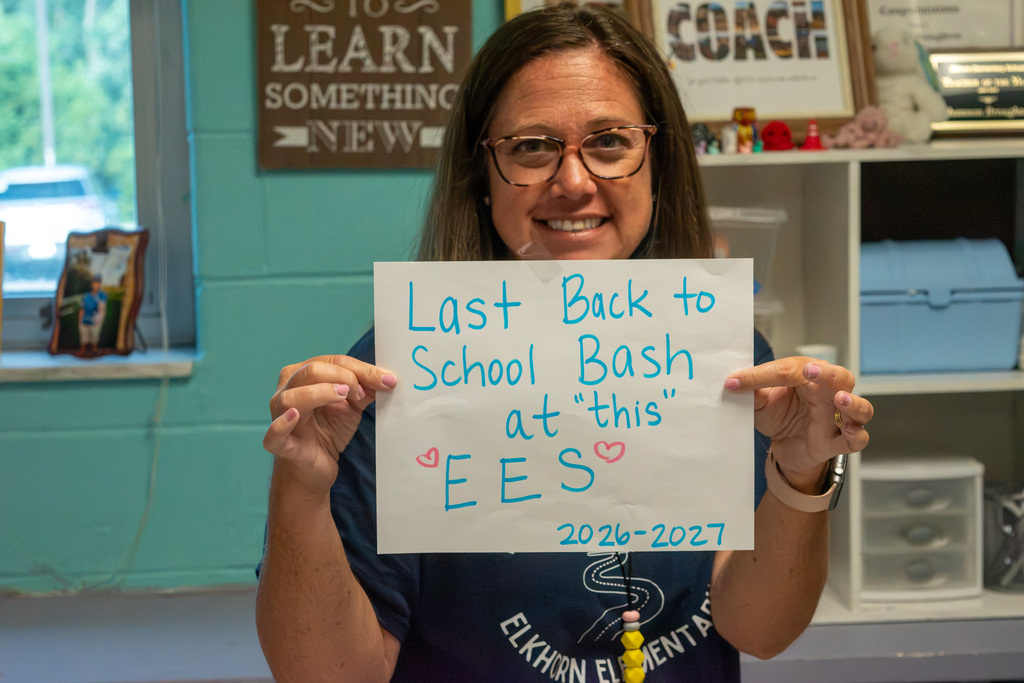 TO
LEARN
SOMETHING
NEW
COACH
Congratulations
Last Back to
School Bash
at "this"
EES
2026-2027
ELKHORN ELEMENTARY